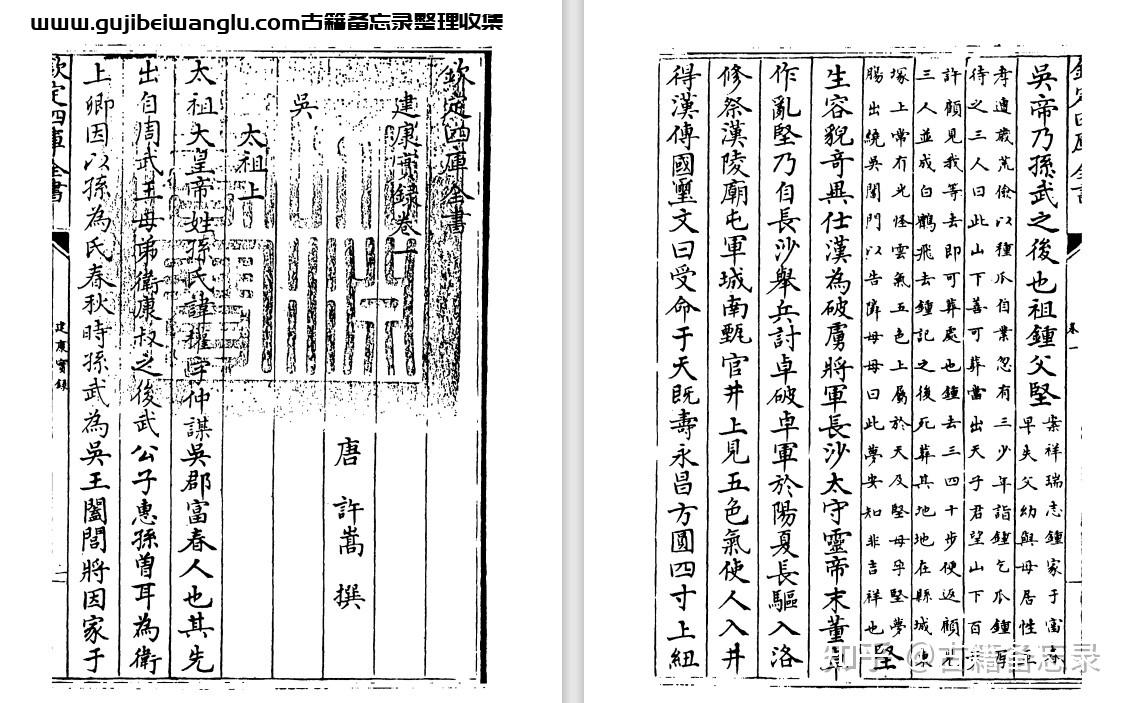 www.gujibeiwanglu.com古籍备忘录整理收集
欽定四庫全書
建康實錄卷一
唐 許嵩 撰
吳
太祖上
太祖大皇帝姓孫氏諱權字仲謀吳郡富春人也其先
出自周武王母弟衛康叔之後武公子惠孫曽耳為衛
上卿因以孫為氏春秋時孫武為吳王闔閭將因家于
欽定四庫全書
建康實錄
欽定四庫全書
卷一
吳帝乃孫武之後也祖鍾父堅
案祥瑞志鍾家于富春
早失父幼與母居性至
孝遭歲荒儉以種瓜自業忽有三少年詣鍾乞瓜鍾厚
待之三人曰此山下善可葬當出天子君望山下百步
許顧見我等去即可葬處也鍾去三四十步便返顧見
三人並成白鶴飛去鍾記之後死葬其地地在縣城東
塚上常有光怪雲氣五色上屬於天及堅母孕堅夢
腸出繞吳閶門以告隣母母曰此夢安知非吉祥也
堅
生容貌奇異仕漢為破虜將軍長沙太守靈帝末董卓
作亂堅乃自長沙舉兵討卓破卓軍於陽夏長驅入洛
修祭漢陵廟屯軍城南甄官井上見五色氣使人入井
得漢傳國璽文曰受命于天既壽永昌方圓四寸上紐
知乎 @古籍备忘录